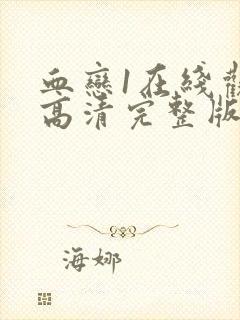 血戀1在綫觀
高清完整版
海娜